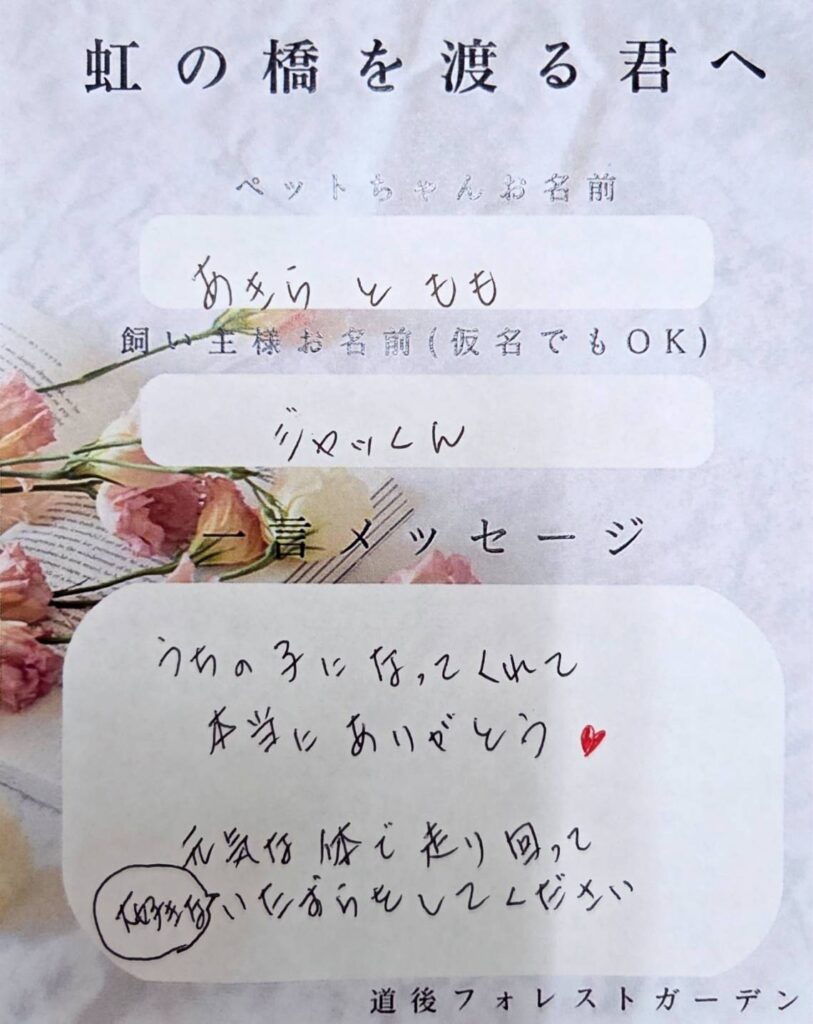 虹の橋を渡る君へ
ペットちゃんお名前
あきら と もも
飼い主様お名前(仮名でもOK)
ジャッくん
一言メッセージ
うちの子になってくれて
本当にありがとう
元気な体で走り回って
大好きないたずらをしてください
道後フォレストガーデン